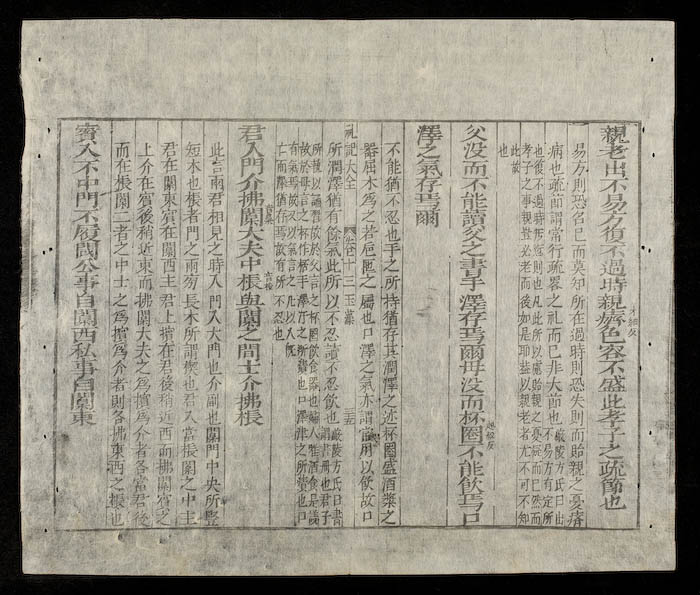 親老出不易方復不過時親癠色容不盛此孝子之疏節也
才細反
易方則恐召己而莫知所在過時則恐失則而貽親之憂癠
病也疏節謂常行疏畧之礼而已非大節也嚴陵方氏曰出
不易方有定所
孝子之事親豈必老而後如是耶蓋以親老者尤不可不知
此故
也
父没而不能讀父之書手澤存焉爾母没而杯圈不能飲焉口
澤之氣存焉爾
不能猶不忍也手之所持猶存其潤澤之迹杯圈盛酒漿之
器屈木爲之若巵匜之屬也口澤之氣亦謂常用以飲故口
礼記大全 卷之十三 玉藻 三五
所潤澤猶有餘氣此所以不忍讀不忍飲也嚴陵方氏曰書
君入門介拂闑大夫中棖與闑之間士介拂棖
此言兩君相見之時入門入大門也介副也闑門中央所豎
短木也棖者門之兩旁長木所謂楔也君入當棖闑之中主
君在闑東賓在闑西主君上擯在君後稍近西而拂闑賓之
上介在賓後稍近東而拂闑大夫之爲擯爲介者各當君後
而在棖闑二者之中士之爲擯爲介者則各拂東西之棖也
賓入不中門不履閾公事自闑西私事自闑東